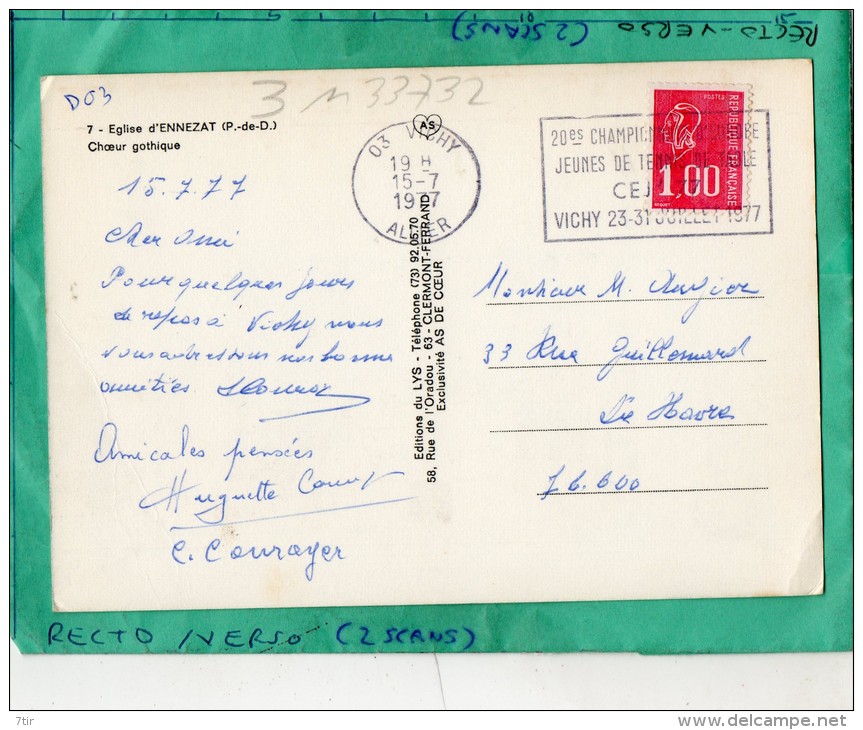 RECTO-VERSO (2 SCANS)
D03
3 n 33732
7 - Eglise d'ENNEZAT (P.-de-D.)
Chœur gothique
AS
03 VICHY
19 H
15-7
1977
ALLIER
20es CHAMPIONNATS D'EUROPE
JEUNES DE TENNIS DE TABLE
CEJ 77
VICHY 23-31 JUILLET 1977
POSTES
REPUBLIQUE FRANÇAISE
1,00
15.7.77
Cher Ami
Pour quelques jours
de repos à Vichy nous
vous adressons nos bonnes
amitiés
Amicales pensées
Huguette
C. Courayer
Editions du LYS - Téléphone (73) 92.05.70
58, Rue de l'Oradou - 63 - CLERMONT-FERRAND
Exclusivité AS DE CŒUR
Monsieur M.
33 Rue Guillemard
Le Havre
76.600
RECTO / VERSO (2 SCANS)
7tir
delcampe.net